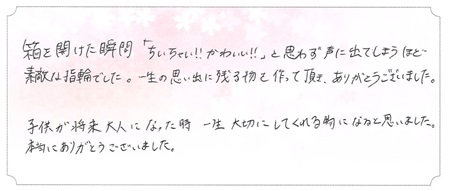 箱を開けた瞬間「ちいちゃい!!かわいい!!」と思わず声に出てしまうほど
素敵な指輪でした。一生の思い出に残る物を作って頂き、ありがとうございました。
子供が将来大人になった時 一生大切にしてくれる物になると思いました。
本当にありがとうございました。